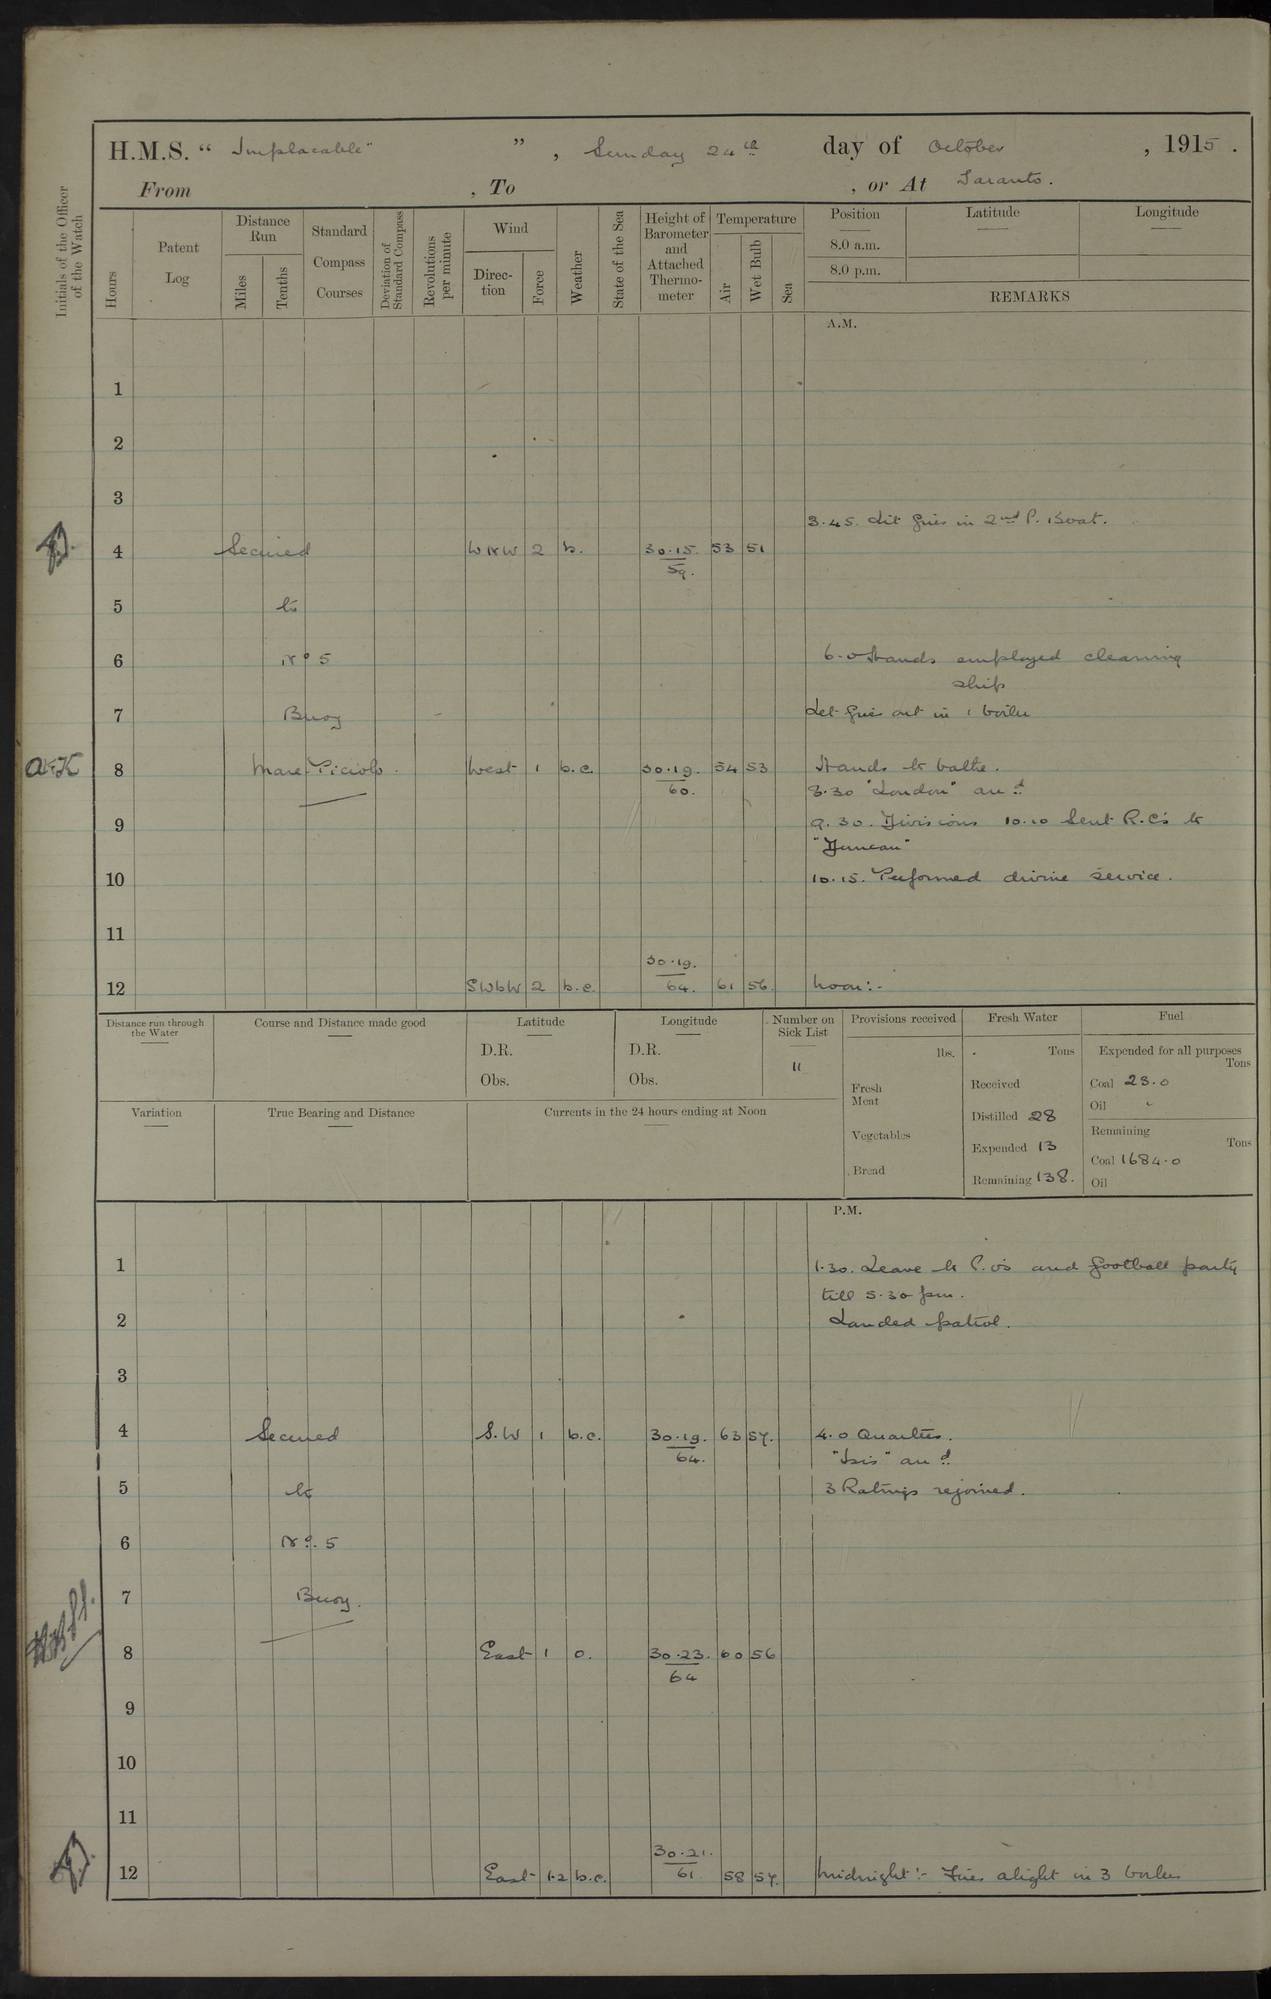 H.M.S. “ Implacable” ” , Sunday 24th day of October , 1915 .
From , To , or At Taranto.
Initials of the Officer of the Watch
Hours
Patent Log
Distance Run
Miles
Tenths
Standard Compass Courses
Deviation of Standard Compass
Revolutions per minute
Wind
Direction
Force
Weather
State of the Sea
Height of Barometer and Attached Thermometer
Temperature
Air
Wet Bulb
Sea
Position
Latitude
Longitude
8.0 a.m.
8.0 p.m.
REMARKS
A.M.
1
2
3
3.45. Lit fires in 2nd P. Boat.
4 Secured WNW 2 b. 30.15. 53 51
59.
5 to
6 No 5 6.0 Hands employed cleaning
ship
7 Buoy Let fires out in 1 boiler
8 Mare Piccolo. West 1 b.c. 30.19. 54 53 Hands to bathe.
60. 8.30 "London" arrd.
9 9.30. Divisions 10.10 Sent R.C's to
"Duncan"
10 10.15. Performed divine service.
11
30.19.
12 SWbW 2 b.c. 64. 61 56 Noon:-
Distance run through the Water
Course and Distance made good
Latitude
D.R.
Obs.
Longitude
D.R.
Obs.
Number on Sick List
11
Provisions received
lbs.
Fresh Meat
Vegetables
Bread
Fresh Water
Tons
Received
Distilled 28
Expended 13
Remaining 138.
Fuel
Expended for all purposes
Tons
Coal 23.0
Oil
Remaining
Tons
Coal 1684.0
Oil
Variation
True Bearing and Distance
Currents in the 24 hours ending at Noon
P.M.
1 1.30. Leave to P.O's and football party
till 5.30 pm.
2 Landed patrol.
3
4 Secured S.W 1 b.c. 30.19. 63 57. 4.0 Quarters.
64. "Isis" arrd.
5 to 3 Ratings rejoined.
6 No. 5
7 Buoy.
8 East 1 o. 30.23. 60 56
64
9
10
11
30.21.
12 East 1.2 b.c. 61 58 57. Midnight:- Fires alight in 3 boilers